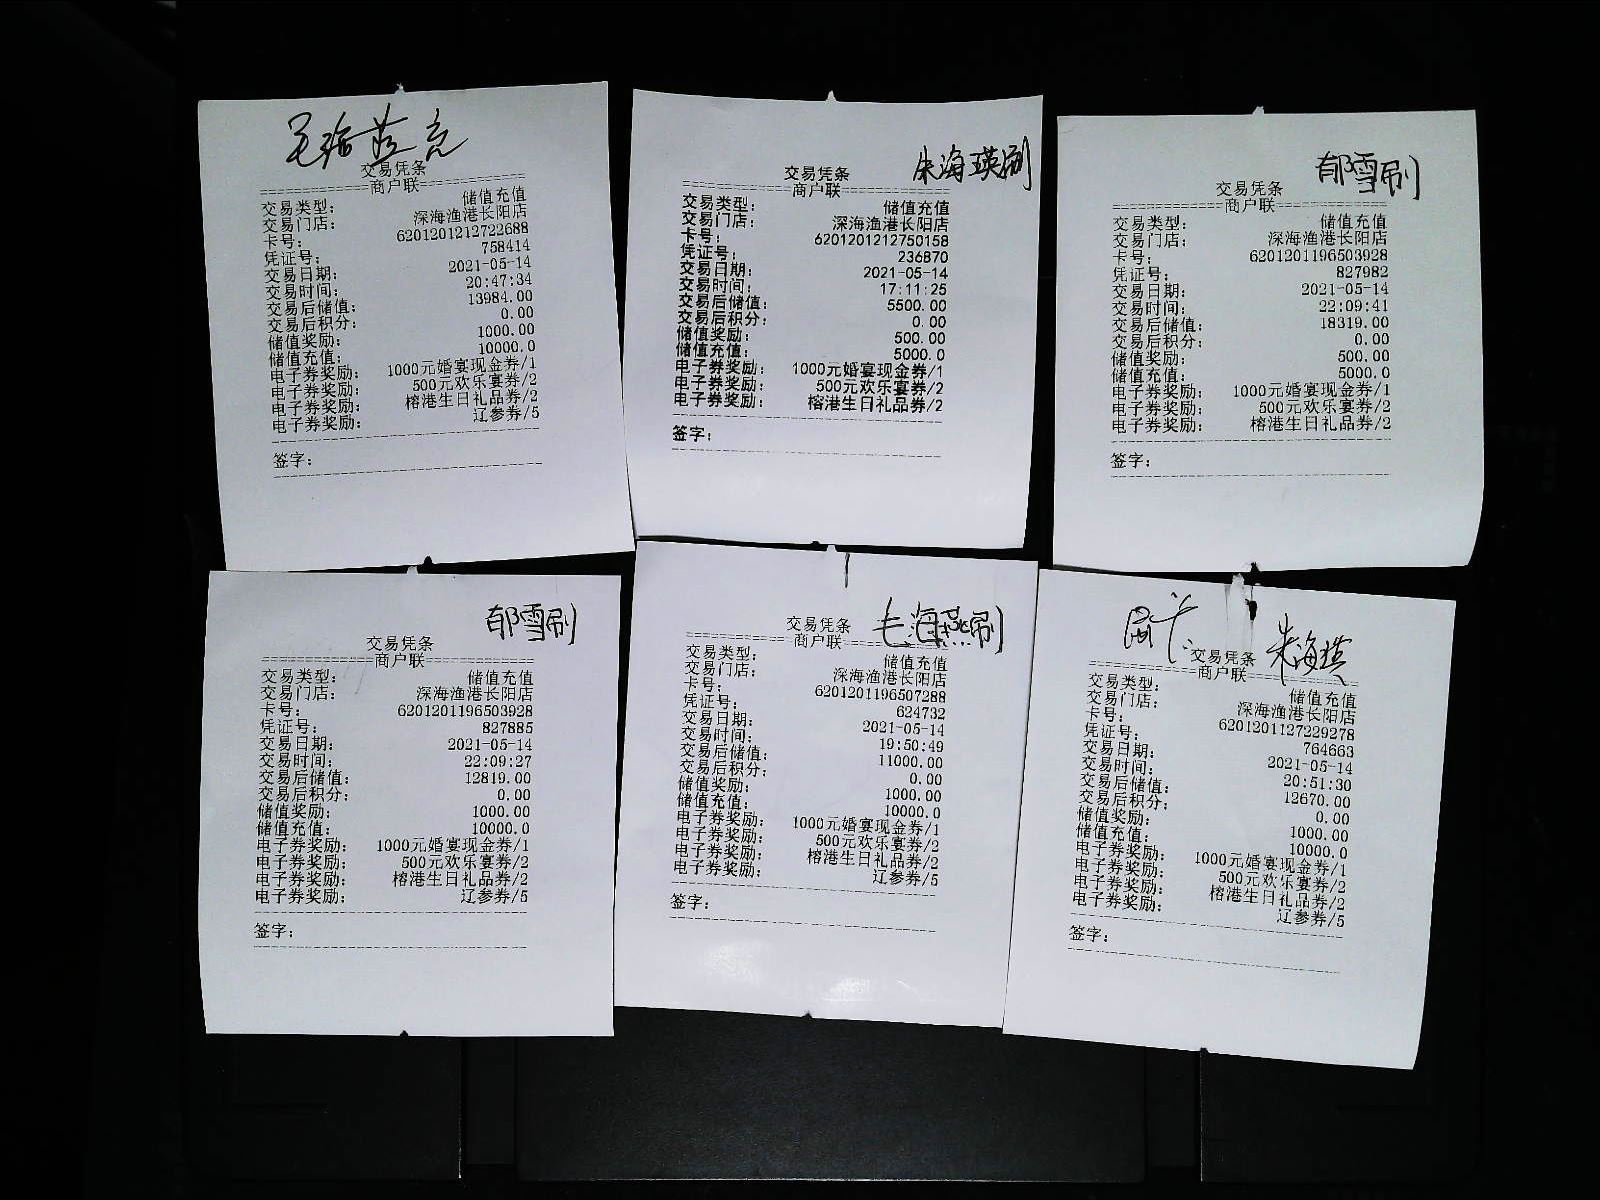 毛海燕
交易凭条
商户联
交易类型： 储值充值
交易门店： 深海渔港长阳店
卡号： 6201201212722688
凭证号： 758414
交易日期： 2021-05-14
交易时间： 20:47:34
交易后储值： 13984.00
交易后积分： 0.00
储值奖励： 1000.00
储值充值： 10000.0
电子券奖励： 1000元婚宴现金券/1
电子券奖励： 500元欢乐宴券/2
电子券奖励： 榕港生日礼品券/2
电子券奖励： 辽参券/5
签字：
朱海瑛刷
交易凭条
商户联
交易类型： 储值充值
交易门店： 深海渔港长阳店
卡号： 6201201212750158
凭证号： 236870
交易日期： 2021-05-14
交易时间： 17:11:25
交易后储值： 5500.00
交易后积分： 0.00
储值奖励： 500.00
储值充值： 5000.0
电子券奖励： 1000元婚宴现金券/1
电子券奖励： 500元欢乐宴券/2
电子券奖励： 榕港生日礼品券/2
签字：
郁雪刷
交易凭条
商户联
交易类型： 储值充值
交易门店： 深海渔港长阳店
卡号： 6201201196503928
凭证号： 827982
交易日期： 2021-05-14
交易时间： 22:09:41
交易后储值： 18319.00
交易后积分： 0.00
储值奖励： 500.00
储值充值： 5000.0
电子券奖励： 1000元婚宴现金券/1
电子券奖励： 500元欢乐宴券/2
电子券奖励： 榕港生日礼品券/2
签字：
郁雪刷
交易凭条
商户联
交易类型： 储值充值
交易门店： 深海渔港长阳店
卡号： 6201201196503928
凭证号： 827885
交易日期： 2021-05-14
交易时间： 22:09:27
交易后储值： 12819.00
交易后积分： 0.00
储值奖励： 1000.00
储值充值： 10000.0
电子券奖励： 1000元婚宴现金券/1
电子券奖励： 500元欢乐宴券/2
电子券奖励： 榕港生日礼品券/2
电子券奖励： 辽参券/5
签字：
毛海燕刷
交易凭条
商户联
交易类型： 储值充值
交易门店： 深海渔港长阳店
卡号： 6201201196507288
凭证号： 624732
交易日期： 2021-05-14
交易时间： 19:50:49
交易后储值： 11000.00
交易后积分： 0.00
储值奖励： 1000.00
储值充值： 10000.0
电子券奖励： 1000元婚宴现金券/1
电子券奖励： 500元欢乐宴券/2
电子券奖励： 榕港生日礼品券/2
电子券奖励： 辽参券/5
签字：
朱海瑛
交易凭条
商户联
交易类型： 储值充值
交易门店： 深海渔港长阳店
卡号： 6201201127229278
凭证号： 764663
交易日期： 2021-05-14
交易时间： 20:51:30
交易后储值： 12670.00
交易后积分： 0.00
储值奖励： 1000.00
储值充值： 10000.0
电子券奖励： 1000元婚宴现金券/1
电子券奖励： 500元欢乐宴券/2
电子券奖励： 榕港生日礼品券/2
电子券奖励： 辽参券/5
签字：